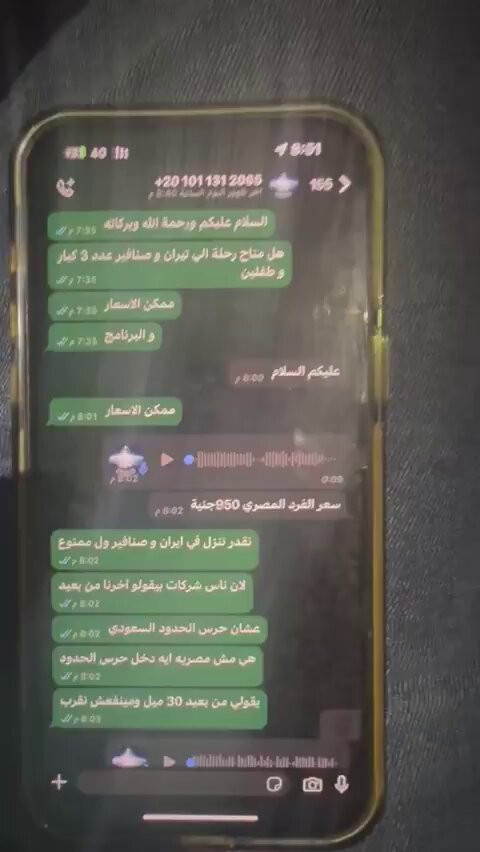 40
8:51
+20 101 131 2065
195
اخر ظهور اليوم الساعة 8:40 م
السلام عليكم ورحمة الله وبركاته
7:35 م
هل متاح رحلة الي تيران و صنافير عدد 3 كبار
و طفلين
7:35 م
ممكن الاسعار
7:35 م
و البرنامج
7:35 م
عليكم السلام
8:00 م
ممكن الاسعار
8:01 م
0:09
8:02 م
سعر الفرد المصري 950جنية
8:02 م
نقدر ننزل في ايران و صنافير ول ممنوع
8:02 م
لان ناس شركات بيقولو أخرنا من بعيد
8:02 م
عشان حرس الحدود السعودي
8:02 م
هي مش مصريه ايه دخل حرس الحدود
8:02 م
يقولي من بعيد 30 ميل ومينفعش نقرب
8:03 م